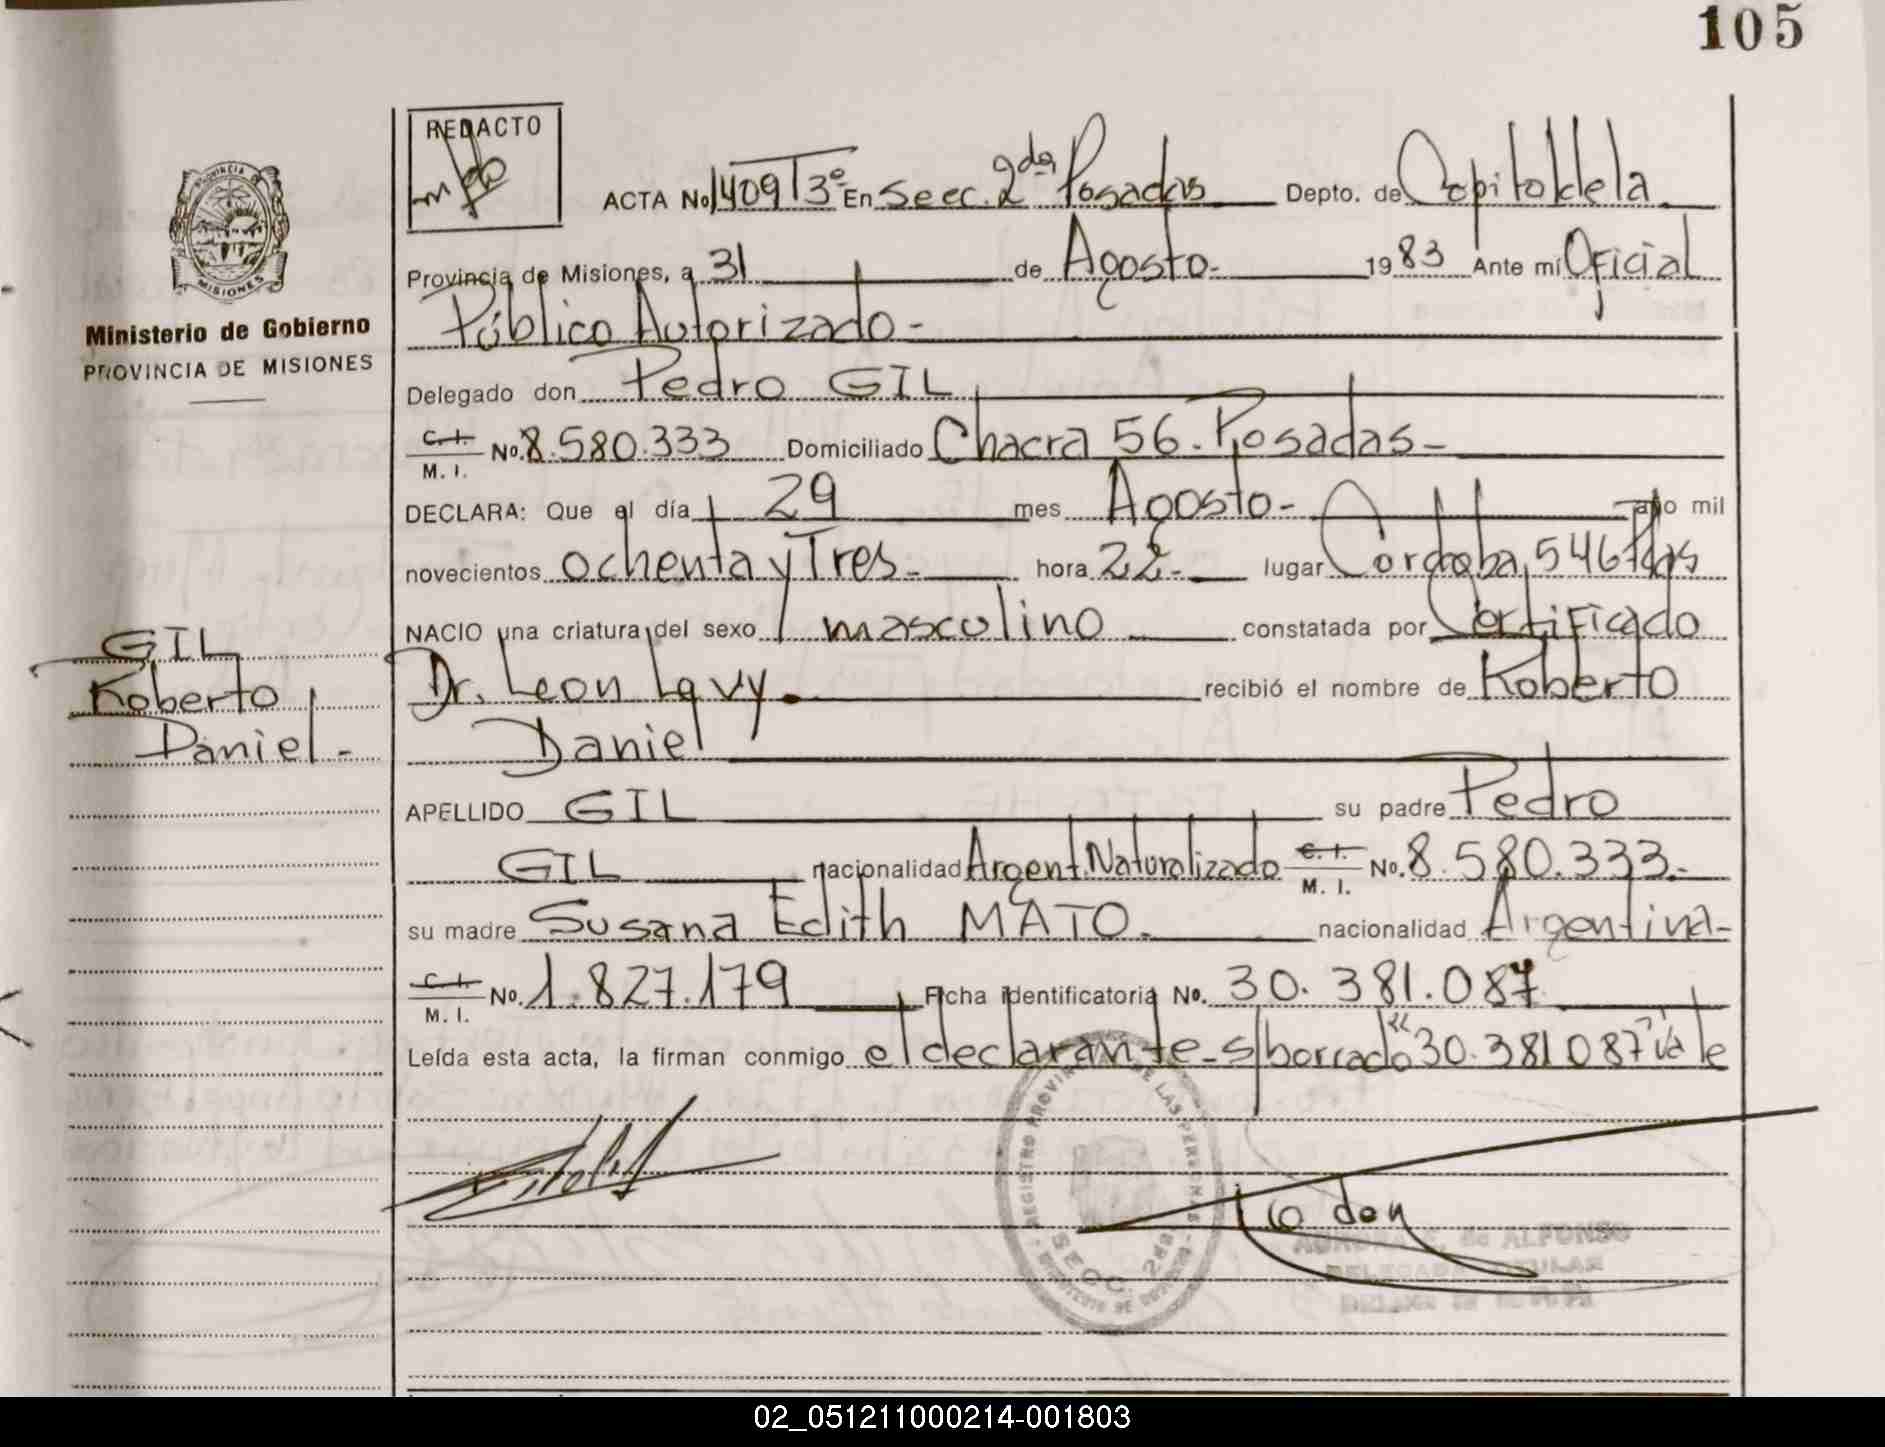 105
REDACTO
ACTA No 1409 T3º En Secc. 2da Posadas Depto. de Capital de la
Provincia de Misiones, a 31 de Agosto - 1983 Ante mí Oficial
Público Autorizado -
Delegado don Pedro GIL
C. I.
M. I. No. 8.580.333 Domiciliado Chacra 56 - Posadas -
DECLARA: Que el día 29 mes Agosto - año mil
novecientos ochenta y Tres - hora 22 - lugar Córdoba, 546 Pdas
NACIO una criatura del sexo masculino constatada por Certificado
Dr. Leon Lavy. recibió el nombre de Roberto
Daniel
APELLIDO GIL su padre Pedro
GIL nacionalidad Argent. Naturalizado C. I.
M. I. No. 8.580.333.-
su madre Susana Edith MATO. nacionalidad Argentina -
C. I.
M. I. No. 1.827.179 Ficha identificatoria No. 30.381.087
Leída esta acta, la firman conmigo el declarante - s/borrado "30.381.087" vale
PROVINCIA DE
MISIONES
Ministerio de Gobierno
PROVINCIA DE MISIONES
GIL
Roberto
Daniel -
REGISTRO PROVINCIAL DE LAS PERSONAS
SECC. 2da
AURORA E. de ALFONSO
DELEGADA TITULAR
02_051211000214-001803